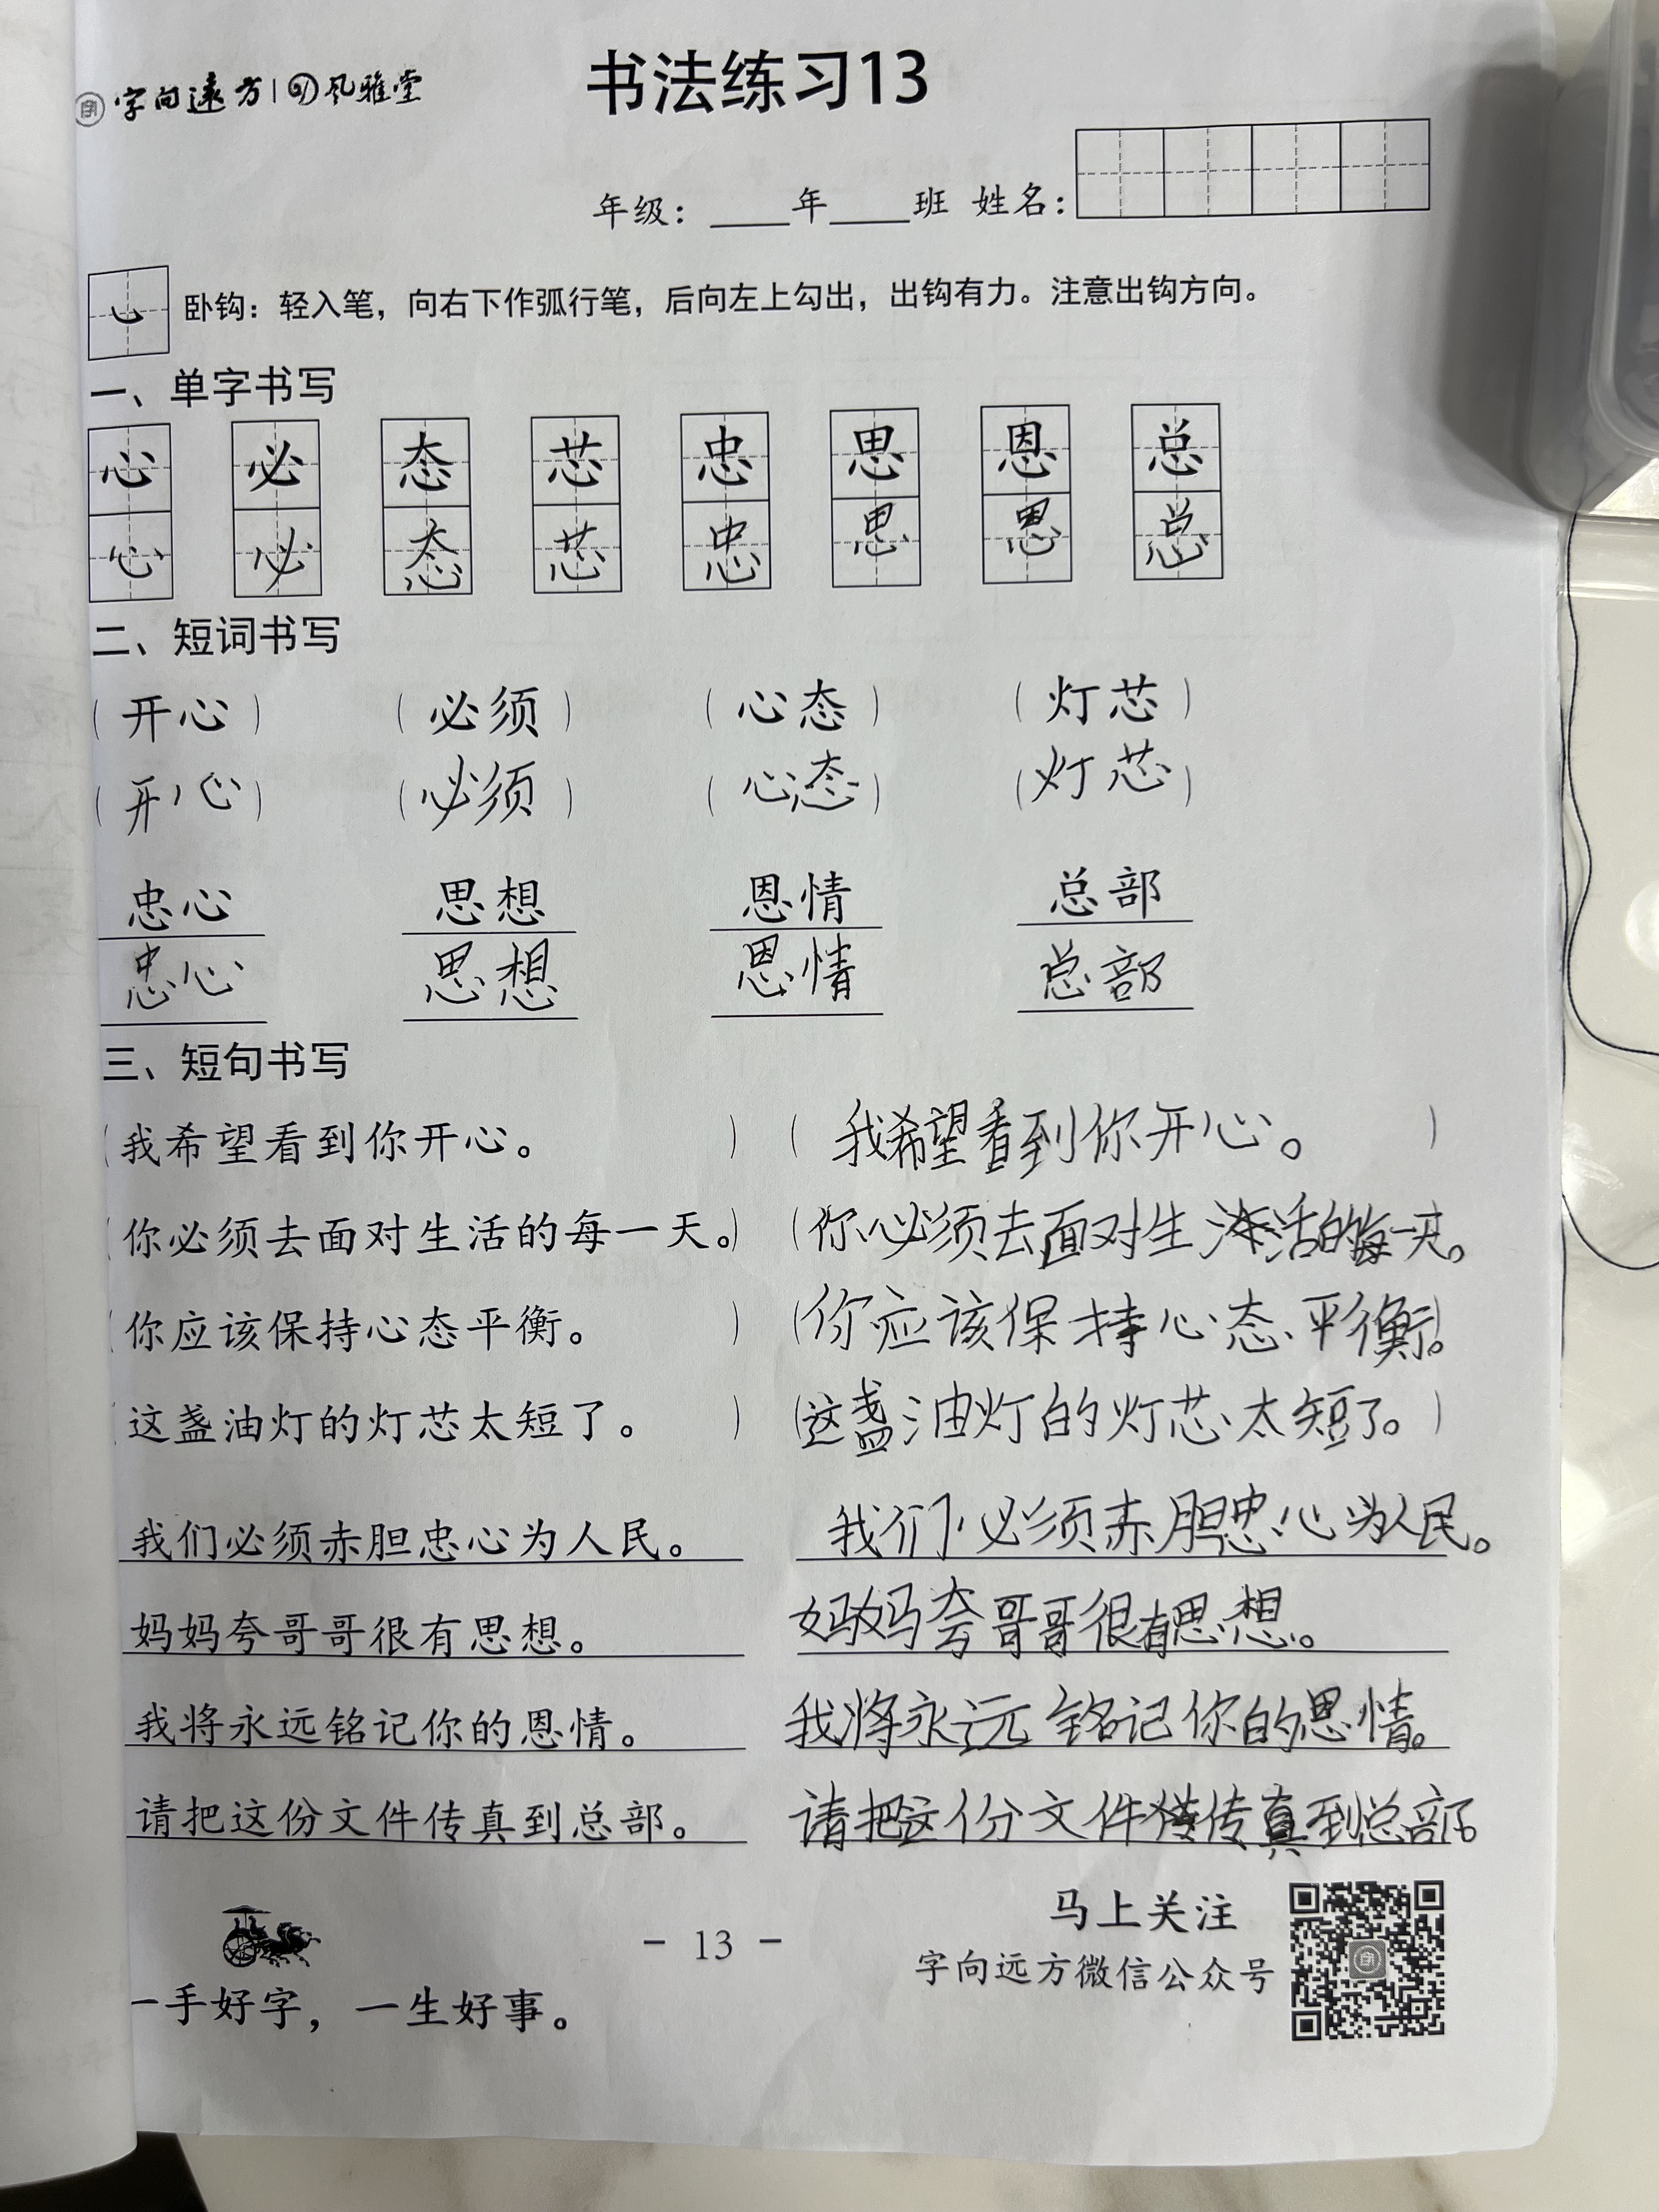 字向远方|风雅堂
书法练习13
年级：____年____班 姓名：
卧钩：轻入笔，向右下作弧行笔，后向左上勾出，出钩有力。注意出钩方向。
一、单字书写
心 必 态 芯 忠 思 恩 总
心 必 态 芯 忠 思 恩 总
二、短词书写
（开心） （必须） （心态） （灯芯）
（开心） （必须） （心态） （灯芯）
忠心 思想 恩情 总部
忠心 思想 恩情 总部
三、短句书写
（我希望看到你开心。） （我希望看到你开心。）
（你必须去面对生活的每一天。） （你必须去面对生活的每一天。
（你应该保持心态平衡。） （你应该保持心态平衡。）
（这盏油灯的灯芯太短了。） （这盏油灯的灯芯太短了。）
我们必须赤胆忠心为人民。 我们必须赤胆忠心为人民。
妈妈夸哥哥很有思想。 妈妈夸哥哥很有思想。
我将永远铭记你的恩情。 我将永远铭记你的恩情。
请把这份文件传真到总部。 请把这份文件传真到总部。
马上关注
字向远方微信公众号
- 13 -
一手好字，一生好事。